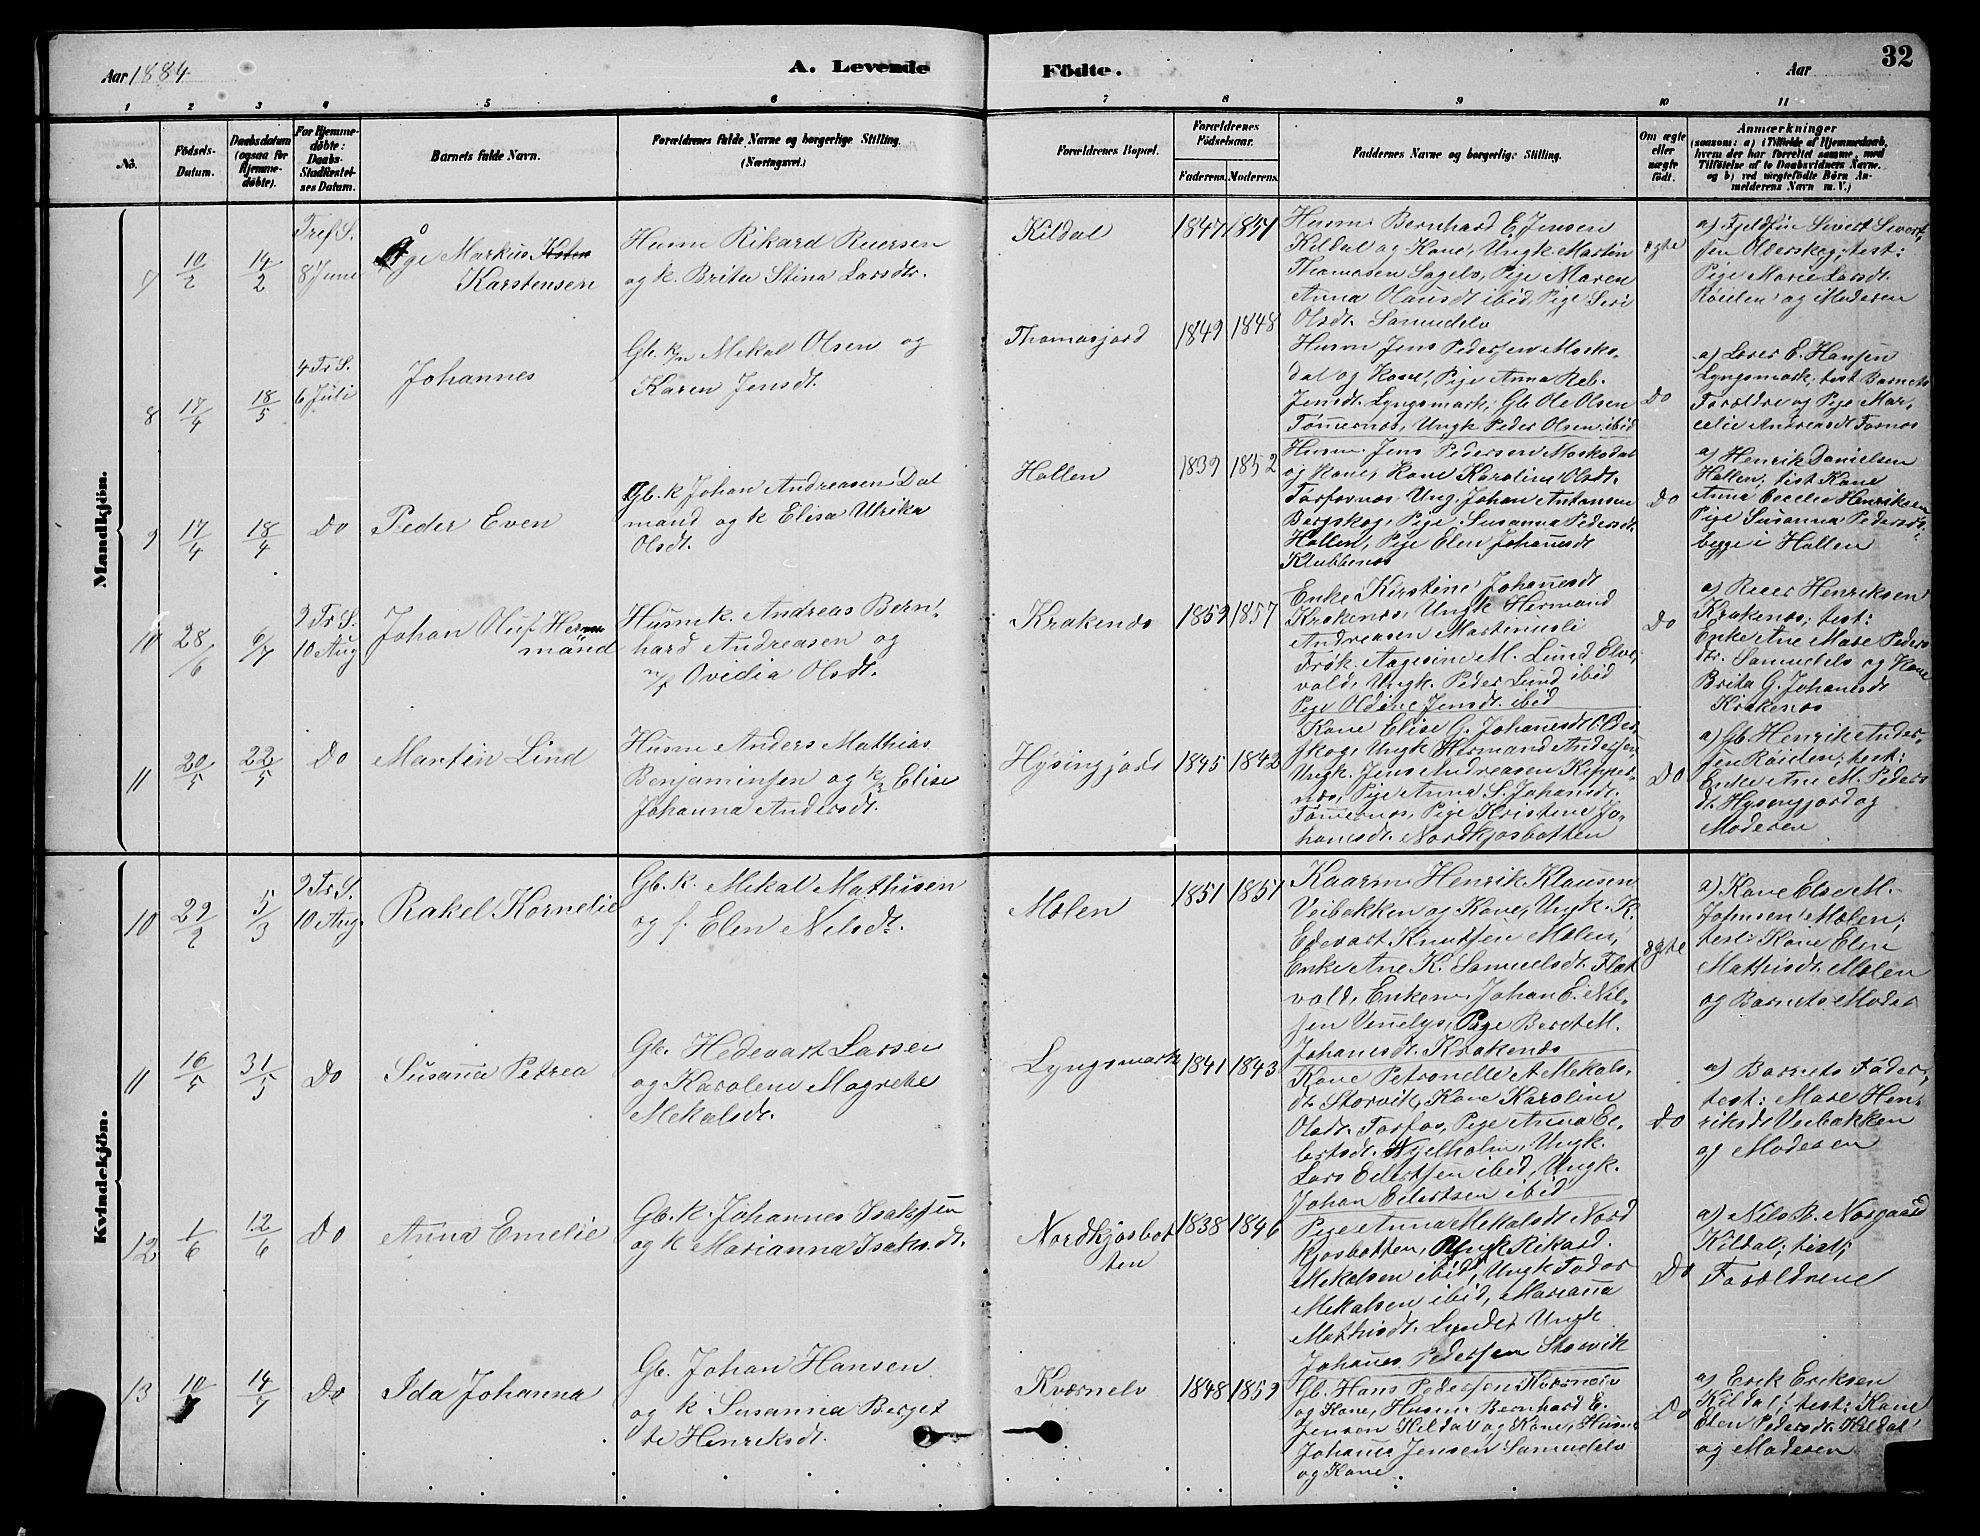 Aar 1884
A. Levende
Födte.
Aar
32
1 2 3 4 5 6 7 8 9 10 11
No.
Födsels-
Datum.
Daabsdatum
(ogsaa for
Hjemme-
döbte).
For Hjemme-
döbte:
Daabs-
Stadfæstel-
ses Datum.
Barnets fulde Navn.
Forældrenes fulde Navne og borgerlige Stilling.
(Næringsvei.)
Forældrenes Bopæl.
Forældrenes
Födselsaar.
Faderens. Moderens.
Faddernes Navne og borgerlige Stilling.
Om ægte
eller
uægte
födt.
Anmærkninger
(saasom: a) i Tilfælde af Hjemmedaab,
hvem der har forrettet samme, med
Tilföielse af to Daabsvidners Navne.
og b) ved uægtefödte Börn An-
melderens Navn m. V.)
Mandkjön.
7
10/2
14/2
Tref S.
8 Juni
Åge Markus
Karstensen
Husm Rikard Ruersen
og k. Brita Stina Larsdtr.
Kildal
1847 1851
Husm Bernhard E. Jensen
Kildal og Kone, Ungk Martin
Thomasen Sagelv, Pige Maren
Anna Olausdt ibid, Pige Siri
Olsdt. Samuelelv
ægte
a) Fjeldfin Sivert Sivert-
sen Olderskog; test:
Pige Marie Larsdt.
Röielen og Moderen
8
17/4
18/5
4 Tr S.
6 Juli
Johannes
Gb. k/n Mekal Olsen og
Karen Jensdt.
Thomasjord
1849 1848
Husm Jens Pedersen Mosko-
dal og Kone, Pige Anna Reb.
Jensdt. Lyngsmark, Gb Ole Olsen
Tömernes, Ungk Peder Olsen ibid
Do
a) Lærer E. Hansen
Lyngsmark; test Barnets
Forældre og Pige Mar-
celie Andreasdt Fornes
9
17/4
18/4
Do
Peder Even
Gb. k Johan Andreasen Dal
mand og k Elisa Ulrika
Olsdt.
Hollen
1839 1852
Husm. Jens Pedersen Moskodal
og Kone, Kone Karoline Olsdt.
Ung. Johan Antonsen
Bergskog, Pige Susanna Pedersdt.
Hollen, Pige Elen Johannesdt
Klubbenes
Do
a) Henrik Danielsen
Hollen; test Kone
Anna Cecelie Henriksen
Pige Susanna Pedersdt.
begge i Hollen
10
28/6
6/7
9 Tr S.
10 Aug
Johan Oluf Her
mand
Husm k. Andreas Bern-
hard Andreasen og
n/f Ovidia Olsdt.
Krakenes
1859 1857
Enke Kirstine Johannesdt
Krakenes, Ungk Hermand
Andreasen Martinusli
Frök. Aagesine M. Lund Elve-
vold, Ungk. Peder Lund ibid
Pige Oldine Jensdt. ibid
Do
a) Reier Henriksen
Krakenes; test:
Enke Ane Mare Peders
dtr. Samuelelv og Kone
Brita G. Johannesdt
Krakenes
11
20/5
22/5
Do
Martin Lind
Husm Anders Mathias
Benjaminsen og k/n Elise
Johanna Andersdt.
Hysingjord
1845 1842
Kone Elise G. Johannesdt Older-
skog, Ungk Hermand Andersen,
Ungk. Jens Andreasen Kipper-
nes, Pige Anna S. Johansdt.
Tömernes, Pige Kristine Jo-
hansdt. Nordkjosbotten
Do
a) Gb. Henrik Ander-
sen Röielen; test:
Enke Ane M. Peders
dt. Hysengjord og
Moderen
Kvindekjön.
10
29/2
5/3
9 Tr. S.
10 Aug.
Rakel Kornelie
Gb. k. Mekal Mathisen
og f. Elen Nilsdt.
Molen
1851 1851
Kaarm Henrik Klausen
Veibakken og Kone, Ungk. K.
Edevart Knutsen Molen,
Enke Ane K. Samuelsdt. Flat
vold, Enkem. Johan E. Nil-
sen Vennelys, Pige Beret M.
Johanesdt. Krakenes
ægte
a) Kone Else M.
Johnsen Molen;
test: Kone Elen
Mathisdt. Molen
og Barnets Moder
11
16/5
31/5
Do
Susana Petrea
Gb. Hedevart Larsen
og Karolene Magrete
Mekalsdt.
Lyngsmark
1841 1843
Kone Petronelle A Mekals-
dt. Storvik, Kone Karoline
Olsdt. Forfos, Pige Anna Ei-
lertsdt. Nyelholm, Ungk.
Lars Eilertsen ibid, Ungk.
Johan Eilertsen ibid
Do
a) Barnets Fader,
test: Mare Hen-
riksdt Veibakken
og Moderen
12
1/6
12/6
Do
Anna Emelie
Gb. k. Johannes Isaksen
og k Marianna Isaksdt.
Nordkjosbot
ten
1838 1846
Pige Anna Mekalsdt Nord
kjosbotten, Ungk Rikard
Mekalsen ibid, Ungk Fodor
Mekalsen ibid, Mariana
Mathisdt. Ungk
Johanes Pedersen Storvik
Do
a) Nils B. Norgaard
Kildal; test;
Forældrene
13
10/7
14/7
Do
Ida Johanna
Gb. Johan Hansen
og k Susanna Berget
te Henriksdt.
Kværnelv
1848 1859
Gb. Hans Pedersen Kværnelv
og Kone, Husm Bernhard E.
Jensen Kildal og Kone, Husm
Johanes Jensen Samuelelv
og Kone.
Do
a) Erik Eriksen
Kildal; test: Kone
Elen Pedersdt. Kildal
og Moderen